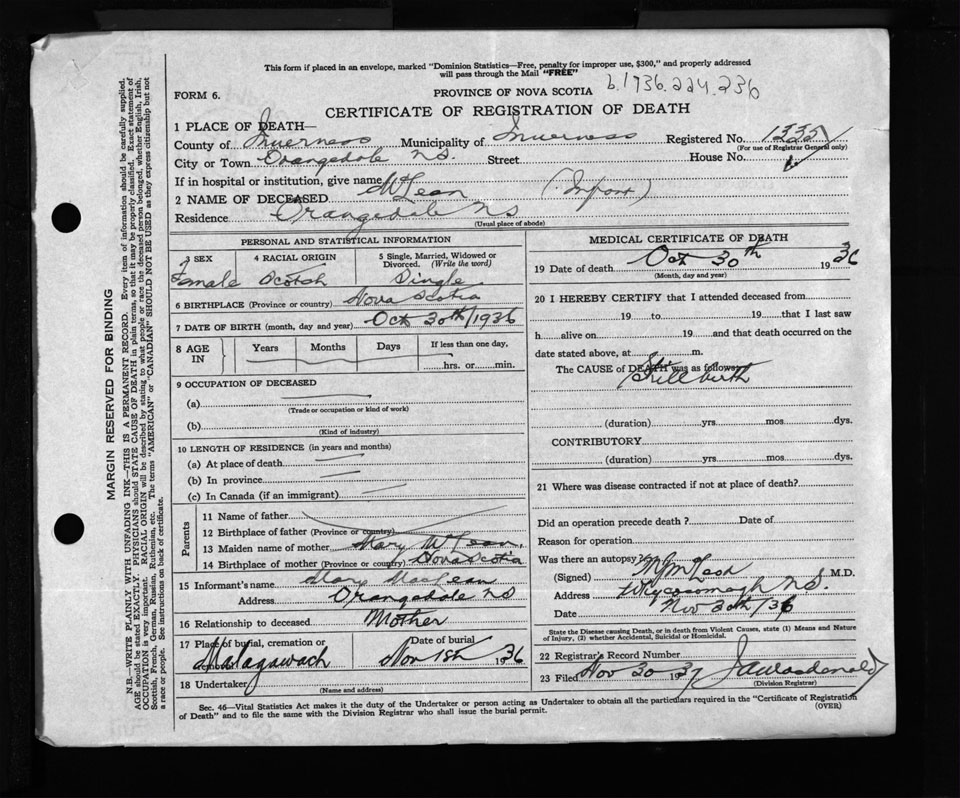 This form if placed in an envelope, marked "Dominion Statistics—Free, penalty for improper use, $300," and properly addressed
will pass through the Mail "FREE"
b.1936.224.236
FORM 6.
PROVINCE OF NOVA SCOTIA
CERTIFICATE OF REGISTRATION OF DEATH
1 PLACE OF DEATH—
County of Inverness Municipality of Inverness Registered No. 1335
(For use of Registrar General only)
City or Town Orangedale N.S. Street House No.
If in hospital or institution, give name
2 NAME OF DECEASED McLean (Infant)
Residence Orangedale N S
(Usual place of abode)
PERSONAL AND STATISTICAL INFORMATION
3 SEX 4 RACIAL ORIGIN 5 Single, Married, Widowed or Divorced. (Write the word)
Female Scotch Single
6 BIRTHPLACE (Province or country) Nova Scotia
7 DATE OF BIRTH (month, day and year) Oct 30th/1936
8 AGE IN Years Months Days If less than one day,
hrs. or min.
9 OCCUPATION OF DECEASED
(a)
(Trade or occupation or kind of work)
(b)
(Kind of industry)
10 LENGTH OF RESIDENCE (in years and months)
(a) At place of death
(b) In province
(c) In Canada (if an immigrant)
Parents
11 Name of father
12 Birthplace of father (Province or country)
13 Maiden name of mother Mary McLean
14 Birthplace of mother (Province or country) Nova Scotia
15 Informant's name Mary MacLean
Address Orangedale N S
16 Relationship to deceased Mother
17 Place of burial, cremation or Date of burial
Malagawach Nov 1st 1936
18 Undertaker
(Name and address)
MEDICAL CERTIFICATE OF DEATH
19 Date of death Oct 30th 1936
(Month, day and year)
20 I HEREBY CERTIFY that I attended deceased from
19 to 19 that I last saw
h alive on 19 and that death occurred on the
date stated above, at m.
The CAUSE of DEATH was as follows:
Still birth
(duration) yrs mos dys.
CONTRIBUTORY
(duration) yrs mos dys.
21 Where was disease contracted if not at place of death?
Did an operation precede death ? Date of
Reason for operation
Was there an autopsy?
(Signed) M.D.
Address Whycocomagh N S
Date Nov 30th/36
State the Disease causing Death, or in death from Violent Causes, state (1) Means and Nature
of Injury, (2) whether Accidental, Suicidal or Homicidal.
22 Registrar's Record Number
23 Filed Nov 30 19 J A Macdonald
(Division Registrar)
Sec. 46—Vital Statistics Act makes it the duty of the Undertaker or person acting as Undertaker to obtain all the particulars required in the "Certificate of Registration
of Death" and to file the same with the Division Registrar who shall issue the burial permit. (OVER)
MARGIN RESERVED FOR BINDING
N.B.—WRITE PLAINLY WITH UNFADING INK—THIS IS A PERMANENT RECORD. Every item of information should be carefully supplied.
AGE should be stated EXACTLY. PHYSICIANS should STATE CAUSE OF DEATH in plain terms, so that it may be properly classified. Exact statement of
OCCUPATION is very important. RACIAL ORIGIN will be described by stating to what people or race the deceased person belonged, whether English, Irish,
Scottish, French, German, Russian, Ruthenian, etc. The terms "AMERICAN" or "CANADIAN" SHOULD NOT BE USED as they express citizenship but not
a race or people. See instructions on back of certificate.